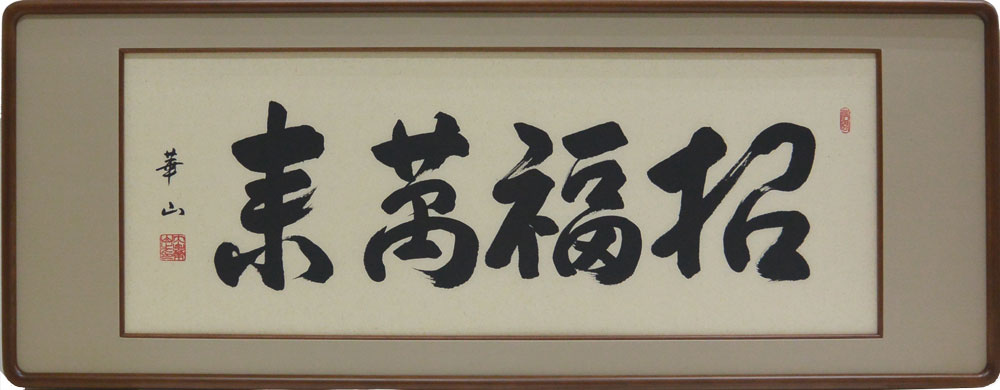 招福萬来
華山